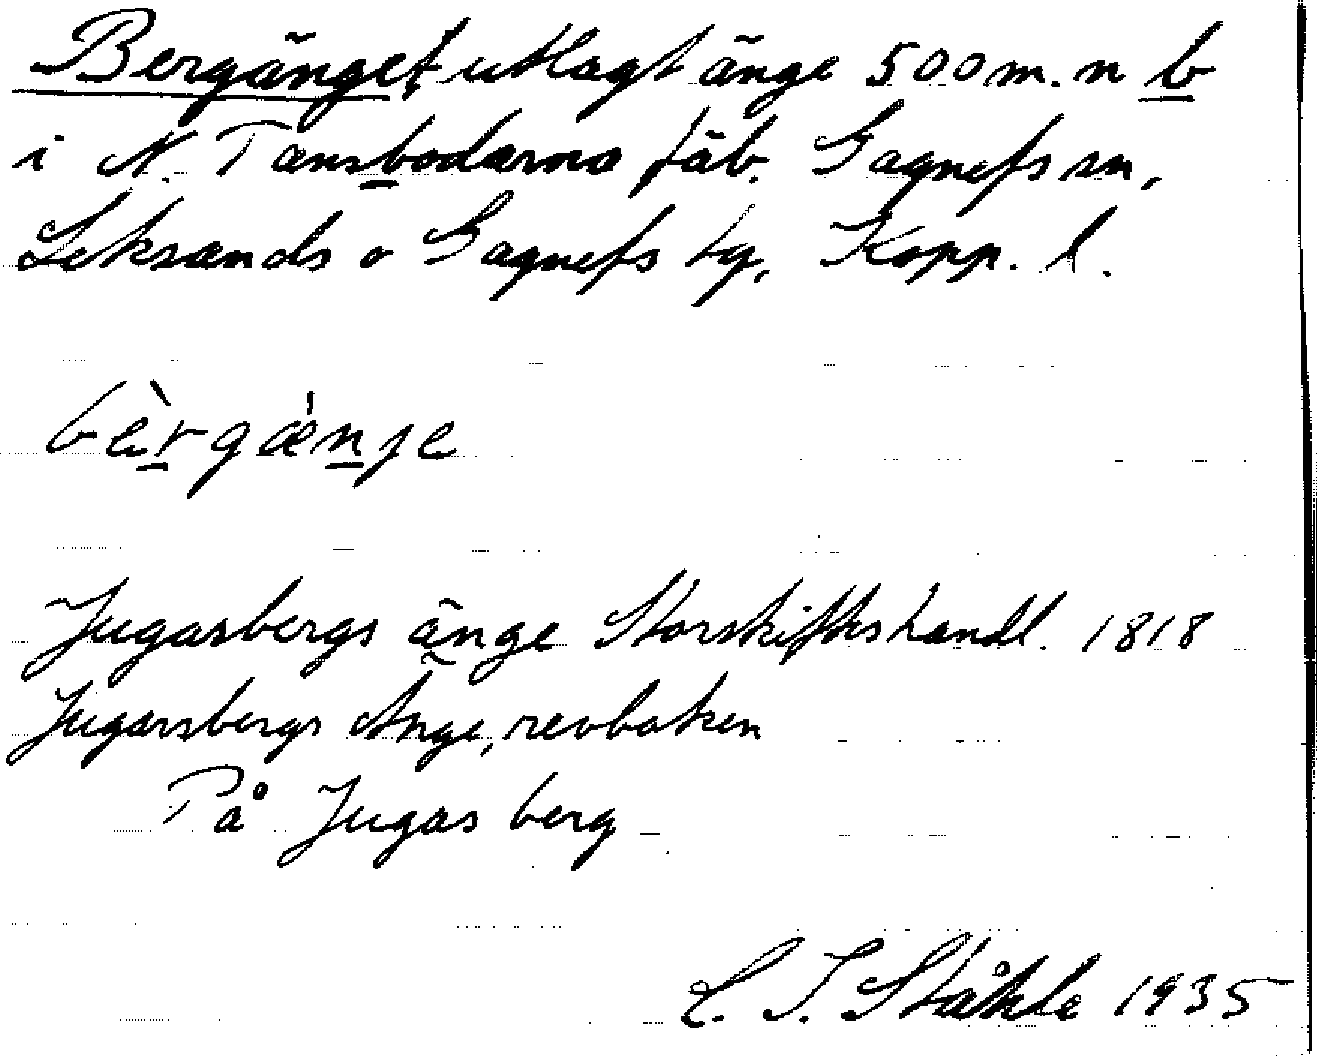 Bergänget utlagt änge 500 m. n b
i N. Tansbodarna fäb. Gagnefs sn,
Leksands o Gagnefs tg, Kopp. l.
bèrgǽnje
Jugasbergs änge Storskifteshandl. 1818
Jugarsbergs Änge, revboken
På Jugas berg
C. I. Ståhle 1935